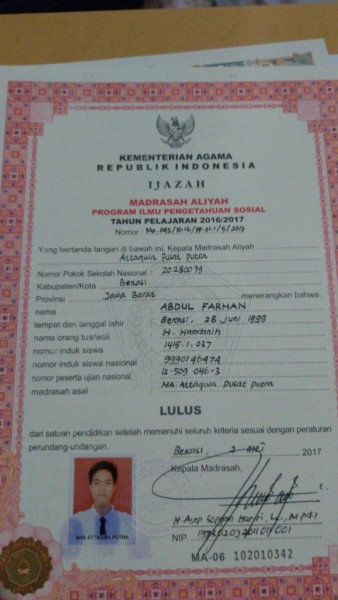 KEMENTERIAN AGAMA
REPUBLIK INDONESIA
IJAZAH
MADRASAH ALIYAH
PROGRAM ILMU PENGETAHUAN SOSIAL
TAHUN PELAJARAN 2016/2017
Nomor :
Yang bertanda tangan di bawah ini, Kepala Madrasah Aliyah
Attaqwa Pusat Putra
Nomor Pokok Sekolah Nasional : 20280079
Kabupaten/Kota : Bekasi
Provinsi : Jawa Barat menerangkan bahwa :
nama ABDUL FARHAN
tempat dan tanggal lahir Bekasi, 28 Juni 1999
nama orang tua/wali H.
nomor induk siswa 1415.1.037
nomor induk siswa nasional
nomor peserta ujian nasional 12-509 046-3
madrasah asal MA. Attaqwa Pusat Putra
LULUS
dari satuan pendidikan setelah memenuhi seluruh kriteria sesuai dengan peraturan
perundang-undangan.
Bekasi, 2 Mei 2017
Kepala Madrasah,
MAS ATTAQWA PUTRA
H Asep
NIP.
MA-06 102010342